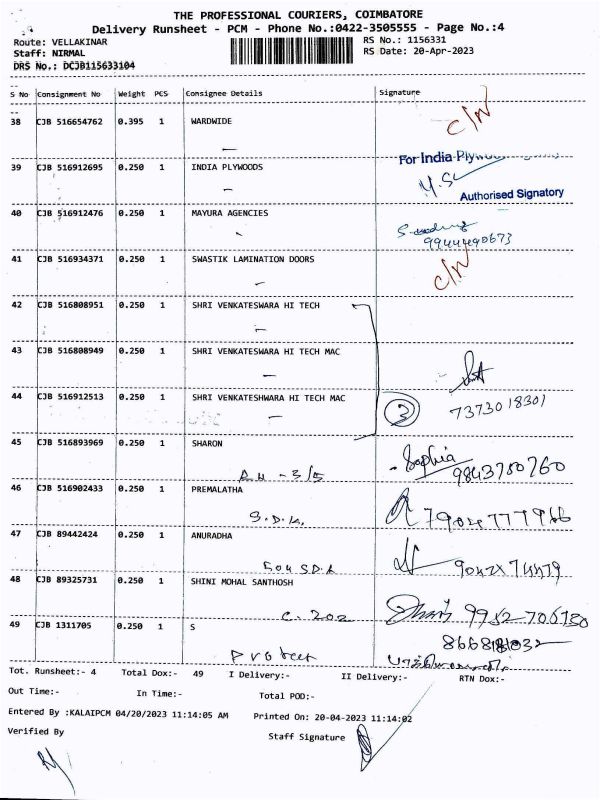 THE PROFESSIONAL COURIERS, COIMBATORE
Delivery Runsheet - PCM - Phone No.:0422-3505555 - Page No.:4
Route: VELLAKINAR
RS No.: 1156331
Staff: NIRMAL
RS Date: 20-Apr-2023
DRS No.: DCJB115633104
S No Consignment No Weight PCS Consignee Details Signature
38 CJB 516654762 0.395 1 WARDWIDE C/N
39 CJB 516912695 0.250 1 INDIA PLYWOODS For India
Authorised Signatory
40 CJB 516912476 0.250 1 MAYURA AGENCIES
9944490673
41 CJB 516934371 0.250 1 SWASTIK LAMINATION DOORS C/N
42 CJB 516808951 0.250 1 SHRI VENKATESWARA HI TECH
43 CJB 516808949 0.250 1 SHRI VENKATESWARA HI TECH MAC
44 CJB 516912513 0.250 1 SHRI VENKATESHWARA HI TECH MAC
3 7373018301
45 CJB 516893969 0.250 1 SHARON Sophia
9843780760
46 CJB 516902433 0.250 1 PREMALATHA
S.D.K.
47 CJB 89442424 0.250 1 ANURADHA
48 CJB 89325731 0.250 1 SHINI MOHAL SANTHOSH
C. 202
49 CJB 1311705 0.250 1 S
Tot. Runsheet:- 4 Total Dox:- 49 I Delivery:- II Delivery:- RTN Dox:-
Out Time:- In Time:- Total POD:-
Entered By :KALAIPCM 04/20/2023 11:14:05 AM Printed On: 20-04-2023 11:14:02
Verified By Staff Signature